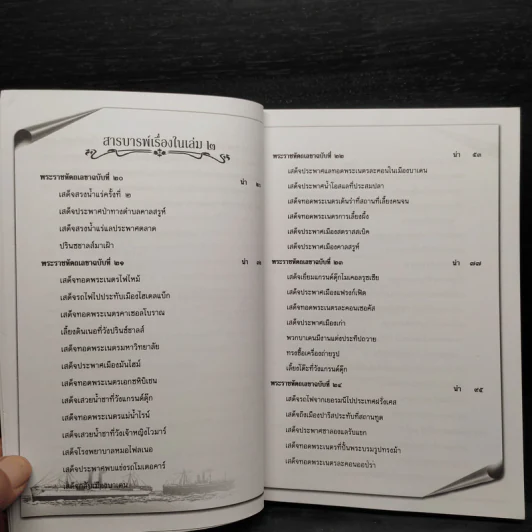 สารบารพ์เรื่องในเล่ม ๒
พระราชหัตถเลขาฉบับที่ ๒๐ น่า ๒
เสด็จสรงน้ำแร่ครั้งที่ ๒
เสด็จประพาศป่าทางตำบลคาลสรูห์
เสด็จสรงน้ำแร่แลประพาศตลาด
ปรินซชาลส์มาเฝ้า
พระราชหัตถเลขาฉบับที่ ๒๑ น่า
เสด็จทอดพระเนตรไฟไหม้
เสด็จรถไฟไปประทับเมืองไฮเดลแบิก
เสด็จทอดพระเนตรคาเซอลโบราณ
เลี้ยงดินเนอที่วังปรินซ์ชาลส์
เสด็จทอดพระเนตรมหาวิทยาลัย
เสด็จประพาศเมืองมันไฮม์
เสด็จทอดพระเนตรเอกซหิบิเชน
เสด็จเสวยน้ำชาที่วังแกรนด์ดุ๊ก
เสด็จทอดพระเนตรแม่น้ำไรน์
เสด็จเสวยน้ำชาที่วังเจ้าหญิงไวมาร์
เสด็จโรงพยาบาลหมอไฟลเนอ
เสด็จประพาศพบแข่งรถโมเตอคาร์
เสด็จกลับเมืองบาเดน
พระราชหัตถเลขาฉบับที่ ๒๒ น่า ๕๓
เสด็จประพาศแลทอดพระเนตรละคอนในเมืองบาเดน
เสด็จประพาศน้ำโอสแลที่ประสมปลา
เสด็จทอดพระเนตรเต้นรำที่สถานที่เลี้ยงคนจน
เสด็จทอดพระเนตรการเลี้ยงผึ้ง
เสด็จประพาศเมืองสตราสสเบิค
เสด็จประพาศเมืองคาลสรูห์
พระราชหัตถเลขาฉบับที่ ๒๓ น่า ๗๗
เสด็จเยี่ยมแกรนด์ดุ๊กไมเคอลรุซเซีย
เสด็จประพาศเมืองแฟรงก์เฟิต
เสด็จทอดพระเนตรละคอนเซอคัส
เสด็จประพาศเมืองเก่า
พวกบาเดนมีงานแต่งประทีปถวาย
ทรงซื้อเครื่องถ่ายรูป
เลี้ยงโต๊ะที่วังแกรนด์ดุ๊ก
พระราชหัตถเลขาฉบับที่ ๒๔ น่า ๙๕
เสด็จรถไฟจากเยอรมนีไปประเทศฝรั่งเศส
เสด็จถึงเมืองปารีสประทับที่สถานทูต
เสด็จประพาศชาลองแลรับแขก
เสด็จทอดพระเนตรที่ปั้นพระบรมรูปทรงม้า
เสด็จทอดพระเนตรละคอนออปรา